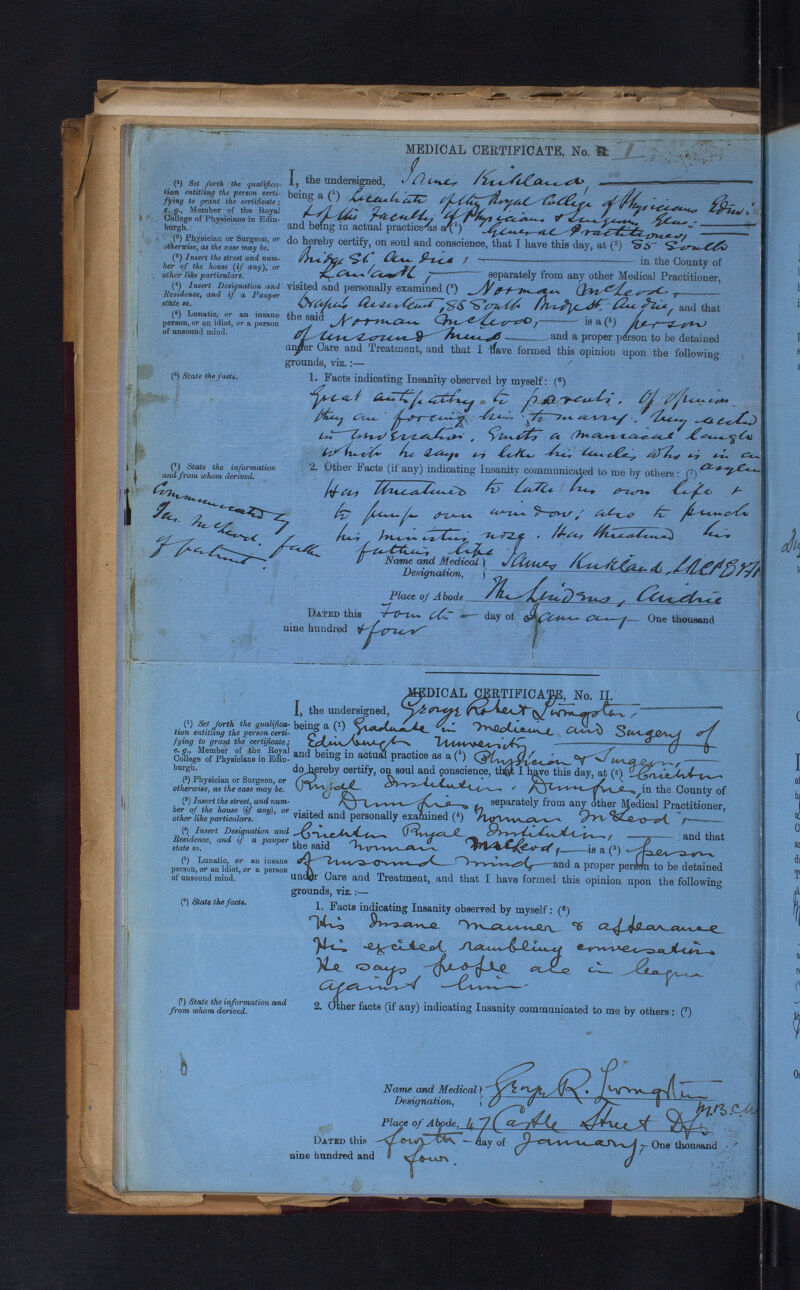 MEDICAL CERTIFICATE, No. I
I, the undersigned, James Kirkland,
(¹) Set forth the qualifica-
tion entitling the person certi-
fying to grant the certificate;
e. g., Member of the Royal
College of Physicians in Edin-
burgh.
being a (¹) Licentiate of the Royal College of Physicians Edin:
& of the Faculty of Physicians & Surgeons Glas:
and being in actual practice as a (²) General Practitioner,
(²) Physician or Surgeon, or
otherwise, as the case may be.
do hereby certify, on soul and conscience, that I have this day, at (³) 85 South
(³) Insert the street and num-
ber of the house (if any), or
other like particulars.
Bridge St. Airdrie, in the County of
Lanark, separately from any other Medical Practitioner,
(⁴) Insert Designation and
Residence, and if a Pauper
state so.
visited and personally examined (⁴) Norman McLeod,
Drapers Assistant, 85 South Bridge St. Airdrie, and that
(⁵) Lunatic, or an insane
person, or an idiot, or a person
of unsound mind.
the said Norman McLeod, is a (⁵) person
of unsound mind and a proper person to be detained
under Care and Treatment, and that I have formed this opinion upon the following
grounds, viz. :—
(⁶) State the facts.
1. Facts indicating Insanity observed by myself: (⁶)
Great antipathy to parents. Of opinion
they are forcing him to marry. Very excited
in conversation. Emits a maniacal laugh
which he says is like his uncle's who is in an
asylum
(⁷) State the information
and from whom derived.
2. Other Facts (if any) indicating Insanity communicated to me by others: (⁷)
Communicated by
McLeod. father
of patient.
Has threatened to take his own life &
to jump over window; also to punch
his ministers nose. Has threatened his
fathers life.
Name and Medical
Designation, James Kirkland,
Place of Abode The Lindens, Airdrie
DATED this Fourth day of January One thousand
nine hundred & four
MEDICAL CERTIFICATE, No. II.
I, the undersigned, George Robert Livingston,
(¹) Set forth the qualifica-
tion entitling the person certi-
fying to grant the certificate;
e. g., Member of the Royal
College of Physicians in Edin-
burgh.
being a (¹) Graduate in Medicine and Surgery of
Edinburgh University
and being in actual practice as a (²) Physician & Surgeon,
(²) Physician or Surgeon, or
otherwise, as the case may be.
do hereby certify, on soul and conscience, that I have this day, at (³) Crichton
Royal Institution, Dumfries, in the County of
(³) Insert the street, and num-
ber of the house (if any), or
other like particulars.
Dumfries separately from any other Medical Practitioner,
visited and personally examined (⁴) Norman McLeod,
(⁴) Insert Designation and
Residence, and if a pauper
state so.
Crichton Royal Institution, and that
the said Norman McLeod, is a (⁵) person
(⁵) Lunatic, or an insane
person, or an idiot, or a person
of unsound mind.
of unsound mind, and a proper person to be detained
under Care and Treatment, and that I have formed this opinion upon the following
grounds, viz. :—
(⁶) State the facts.
1. Facts indicating Insanity observed by myself: (⁶)
His Insane manner & appearance
His excited rambling conversation
He says people are in league
against him.
(⁷) State the information and
from whom derived.
2. Other facts (if any) indicating Insanity communicated to me by others: (⁷)
Name and Medical
Designation, George R. Livingston
M.B.C.M
Place of Abode, 47 Castle Street Dfs
DATED this fourth day of January, One thousand
nine hundred and four.